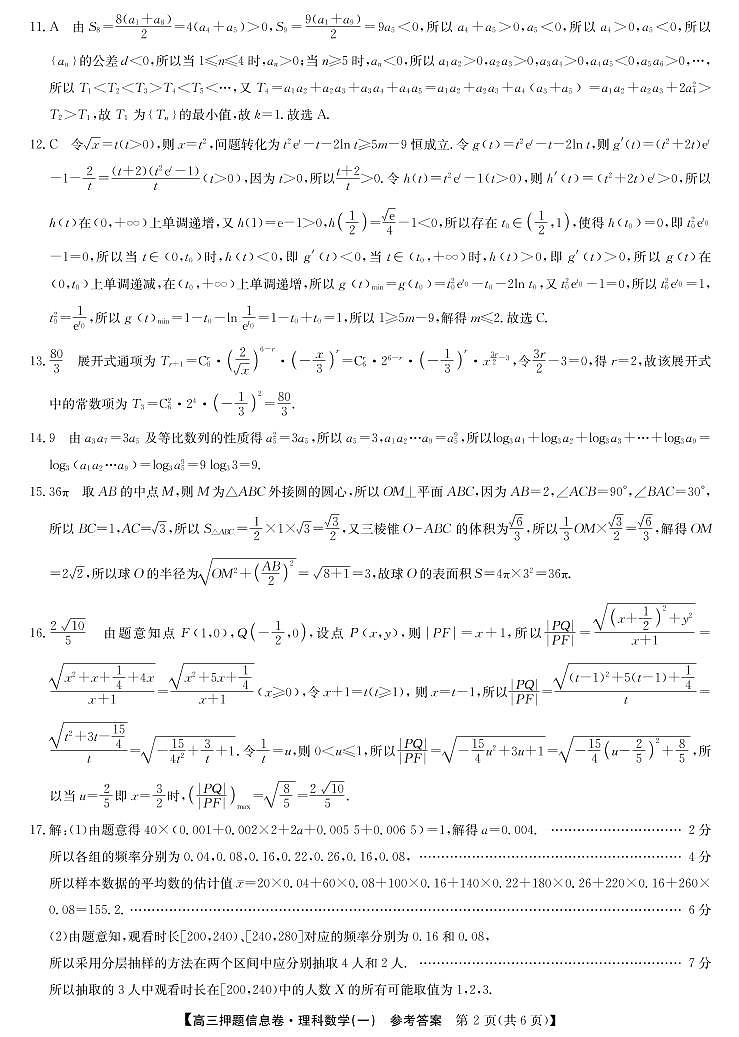 11. A　由 S₈=8(a₁+a₈)/2=4(a₄+a₅)>0,S₉=9(a₁+a₉)/2=9a₅<0,所以 a₄+a₅>0,a₅<0,所以 a₄>0,a₅<0,所以
{aₙ}的公差 d<0,所以当 1≤n≤4 时,aₙ>0;当 n≥5 时,aₙ<0,所以 a₁a₂>0,a₂a₃>0,a₃a₄>0,a₄a₅<0,a₅a₆>0,…,
所以 T₁<T₂<T₃>T₄<T₅<…,又 T₄=a₁a₂+a₂a₃+a₃a₄+a₄a₅=a₁a₂+a₂a₃+a₄(a₃+a₅)=a₁a₂+a₂a₃+2a₄²>
T₂>T₁,故 T₁ 为{Tₙ}的最小值,故 k=1. 故选 A.
12. C　令√x=t(t>0),则 x=t²,问题转化为 t²eᵗ-t-2ln t≥5m-9 恒成立. 令 g(t)=t²eᵗ-t-2ln t,则 g′(t)=(t²+2t)eᵗ
-1-2/t=(t+2)(t²eᵗ-1)/t(t>0),因为 t>0,所以(t+2)/t>0. 令 h(t)=t²eᵗ-1(t>0),则 h′(t)=(t²+2t)eᵗ>0,所以
h(t)在(0,+∞)上单调递增,又 h(1)=e-1>0,h(1/2)=√e/4-1<0,所以存在 t₀∈(1/2,1),使得 h(t₀)=0,即 t₀²e^(t₀)
-1=0,所以当 t∈(0,t₀)时,h(t)<0,即 g′(t)<0,当 t∈(t₀,+∞)时,h(t)>0,即 g′(t)>0,所以 g(t)在
(0,t₀)上单调递减,在(t₀,+∞)上单调递增,所以 g(t)min=g(t₀)=t₀²e^(t₀)-t₀-2ln t₀,又 t₀²e^(t₀)-1=0,所以 t₀²e^(t₀)=1,
t₀²=1/e^(t₀),所以 g(t)min=1-t₀-ln 1/e^(t₀)=1-t₀+t₀=1,所以 1≥5m-9,解得 m≤2. 故选 C.
13. 80/3　展开式通项为 Tᵣ₊₁=C₆ʳ·(2/√x)^(6-r)·(-x/3)^r=C₆ʳ·2^(6-r)·(-1/3)^r·x^(3r/2-3),令3r/2-3=0,得 r=2,故该展开式
中的常数项为 T₃=C₆²·2⁴·(-1/3)²=80/3.
14. 9　由 a₃a₇=3a₅ 及等比数列的性质得 a₅²=3a₅,所以 a₅=3,a₁a₂…a₉=a₅⁹,所以log₃a₁+log₃a₂+log₃a₃+…+log₃a₉=
log₃(a₁a₂…a₉)=log₃a₅⁹=9 log₃3=9.
15. 36π　取 AB 的中点 M,则 M 为△ABC 外接圆的圆心,所以 OM⊥平面 ABC,因为 AB=2,∠ACB=90°,∠BAC=30°,
所以 BC=1,AC=√3,所以 S△ABC=1/2×1×√3=√3/2,又三棱锥 O-ABC 的体积为√6/3,所以1/3OM×√3/2=√6/3,解得 OM
=2√2,所以球 O 的半径为√(OM²+(AB/2)²)=√(8+1)=3,故球 O 的表面积 S=4π×3²=36π.
16. 2√10/5　由题意知点 F(1,0),Q(-1/2,0),设点 P(x,y),则|PF|=x+1,所以|PQ|/|PF|=√((x+1/2)²+y²)/(x+1)=
√(x²+x+1/4+4x)/(x+1)=√(x²+5x+1/4)/(x+1)(x≥0),令 x+1=t(t≥1),则 x=t-1,所以|PQ|/|PF|=√((t-1)²+5(t-1)+1/4)/t=
√(t²+3t-15/4)/t=√(-15/4t²+3/t+1). 令1/t=u,则 0<u≤1,所以|PQ|/|PF|=√(-15/4u²+3u+1)=√(-15/4(u-2/5)²+8/5),所
以当 u=2/5即 x=3/2时,(|PQ|/|PF|)max=√(8/5)=2√10/5.
17. 解:(1)由题意得 40×(0.001+0.002×2+2a+0.005 5+0.006 5)=1,解得 a=0.004. …………………………… 2 分
所以各组的频率分别为 0.04,0.08,0.16,0.22,0.26,0.16,0.08, …………………………… 4 分
所以样本数据的平均数的估计值x̄=20×0.04+60×0.08+100×0.16+140×0.22+180×0.26+220×0.16+260×
0.08=155.2. …………………………… 6 分
(2)由题意知,观看时长[200,240)、[240,280]对应的频率分别为 0.16 和 0.08,
所以采用分层抽样的方法在两个区间中应分别抽取 4 人和 2 人. …………………………… 7 分
所以抽取的 3 人中观看时长在[200,240)中的人数 X 的所有可能取值为 1,2,3.
【高三押题信息卷·理科数学(一)　参考答案　第 2 页(共 6 页)】